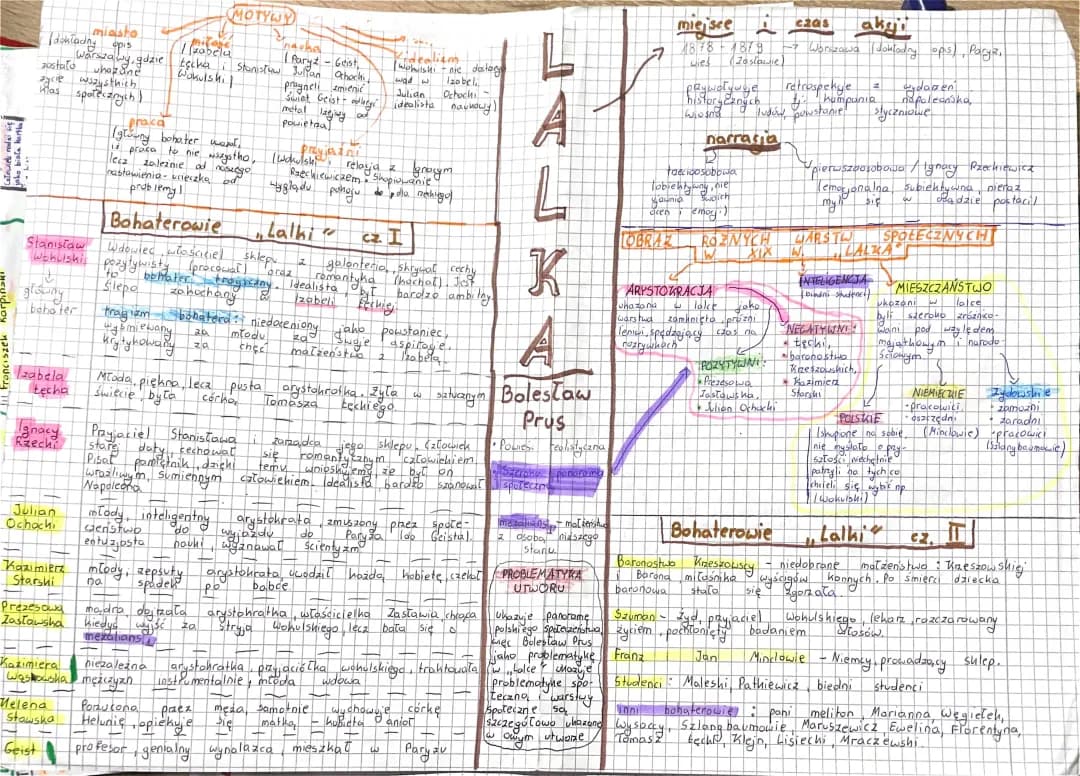 MOTYWY
miasto
(dokładny opis
Warszawy, gdzie
zostało ukazane
życie wszystkich
klas społecznych)
miłość
(Izabela
Łęcka i Stanisław
Wokulski)
nauka
(Paryż - Geist,
Julian Ochocki,
pragnęli zmienić
świat, Geist - odkrycie
metal lżejszy od
powietrza)
idealizm
(Wokulski - nie dostrzega
wad w Izabeli,
Julian Ochocki -
idealista naukowy)
praca
(główny bohater uważał,
iż praca to nie wszystko,
lecz zależnie od naszego
nastawienia - ucieczka od
problemy)
przyjaźni
(Wokulski, relacja z Ignacym
Rzeckiewiczem - skupiowanie
wyglądu pokoju dla niektego)
Człowiek rodzi się
jako biała kartka
Franciszek Karpiński
Bohaterowie „Lalki" cz I
Stanisław
Wokulski
↓
główny
bohater
Wdowiec, właściciel sklepu z galanterią, skrywał cechy
pozytywisty (pracował) oraz romantyka (kochał). Jest
to bohater tragiczny. Idealista, bardzo ambitny
Ślepo zakochany w Izabeli Łęckiej
tragizm bohatera: niedoceniony jako powstaniec,
wyśmiewany za młodu za swoje aspiracje,
krytykowany za chęć małżeństwa z Izabelą.
Izabela
Łęcka
Młoda, piękna, lecz pusta arystokratka. Żyła w sztucznym
świecie, była córką Tomasza Łęckiego.
Ignacy
Rzecki
Przyjaciel Stanisława i zarządca jego sklepu. Człowiek
starej daty, cechował się romantycznym człowiekiem.
Pisał pamiętnik, dzięki temu wnioskujemy, że był on
wrażliwym, sumiennym człowiekiem. Idealista, bardzo szanował
Napoleona.
Julian
Ochocki
młody, inteligentny arystokrata, zmuszony przez społe-
czeństwo do wyjazdu do Paryża (do Geista).
entuzjasta nauki, wyznawał scientyzm
Kazimierz
Starski
młody, zepsuty arystokrata, uwodził każdą kobietę, czekał
na spadek po babce
Prezesowa
Zasławska
mądra dojrzała arystokratka, właścicielka Zasławia, chciała
kiedyś wyjść za stryja Wokulskiego, lecz bała się o
mezalians.
Kazimiera
Wąsowska
niezależna arystokratka, przyjaciółka Wokulskiego, traktowała
mężczyzn instrumentalnie, młoda wdowa
Helena
Stawska
Porzucona przez męża, samotnie wychowuje córkę
Helunię, opiekuje się matką - kobieta anioł
Geist
profesor, genialny wynalazca, mieszkał w Paryżu
LALKA
Bolesław
Prus
• Powieść realistyczna
• Szeroka panorama
społeczna
mezalians - małżeństwo
z osobą niższego
stanu.
PROBLEMATYKA
UTWORU
Ukazuje panoramę
polskiego społeczeństwa,
więc Bolesław Prus
jako problematykę
w „Lalce" ukazuje
problematykę spo-
łeczną i warstwy
społeczne są
szczegółowo ukazane
w owym utworze
miejsce i czas akcji
1878 - 1879 → Warszawa (dokładny opis), Paryż,
wieś (Zasławie)
przywoływuje retrospekcje z wydarzeń
historycznych tj: kampania napoleońska,
wiosna ludów, powstanie styczniowe
narracja
trzecioosobowa
(obiektywny, nie
ujawnia swoich
ocen i emocji)
pierwszoosobowa / Ignacy Rzeckiewicz
(emocjonalna subiektywna, nieraz
myli się w osądzie postaci)
OBRAZ RÓŻNYCH WARSTW SPOŁECZNYCH
W XIX W. „LALKA"
ARYSTOKRACJA
ukazana w lalce jako
warstwa zamknięta, próżni
leniwi, spędzający czas na
rozrywkach
POZYTYWNI:
• Prezesowa
Zasławska,
• Julian Ochocki
NEGATYWNI:
• Łęcki,
• baronostwo
Krzeszowskich,
• Kazimierz
Starski
INTELIGENCJA
(biedni studenci)
MIESZCZAŃSTWO
ukazani w lalce
byli szeroko zróżnico-
wani pod względem
majątkowym i narodo-
ściowym.
POLSKIE
(skupione na sobie,
nie myślało o przy-
szłości, niechętnie
patrzyli na tych co
chcieli się wybić np.
(Wokulski)
NIEMIECKIE
• pracowici,
• oszczędni
(Minclowie)
Żydowskie
• zamożni
• zaradni
• pracowici
(Szlangbaumowie)
Bohaterowie „Lalki" cz. II
Baronostwo Krzeszowscy - niedobrane małżeństwo: Krzeszowskiej
i Barona miłośnika wyścigów konnych. Po śmierci dziecka
baronowa stała się zgorzała.
Szuman - Żyd, przyjaciel Wokulskiego, lekarz, rozczarowany
życiem, pochłonięty badaniem włosów.
Franz Jan Minclowie - Niemcy, prowadzący sklep.
Studenci: Maleski, Patkiewicz, biedni studenci
Inni bohaterowie: pani meliton, Marianna, Węgiełek,
Wysoccy, Szlangbaumowie, Maruszewicz, Ewelina, Florentyna,
Tomasz Łęcki, Klejn, Lisiecki, Mraczewski.